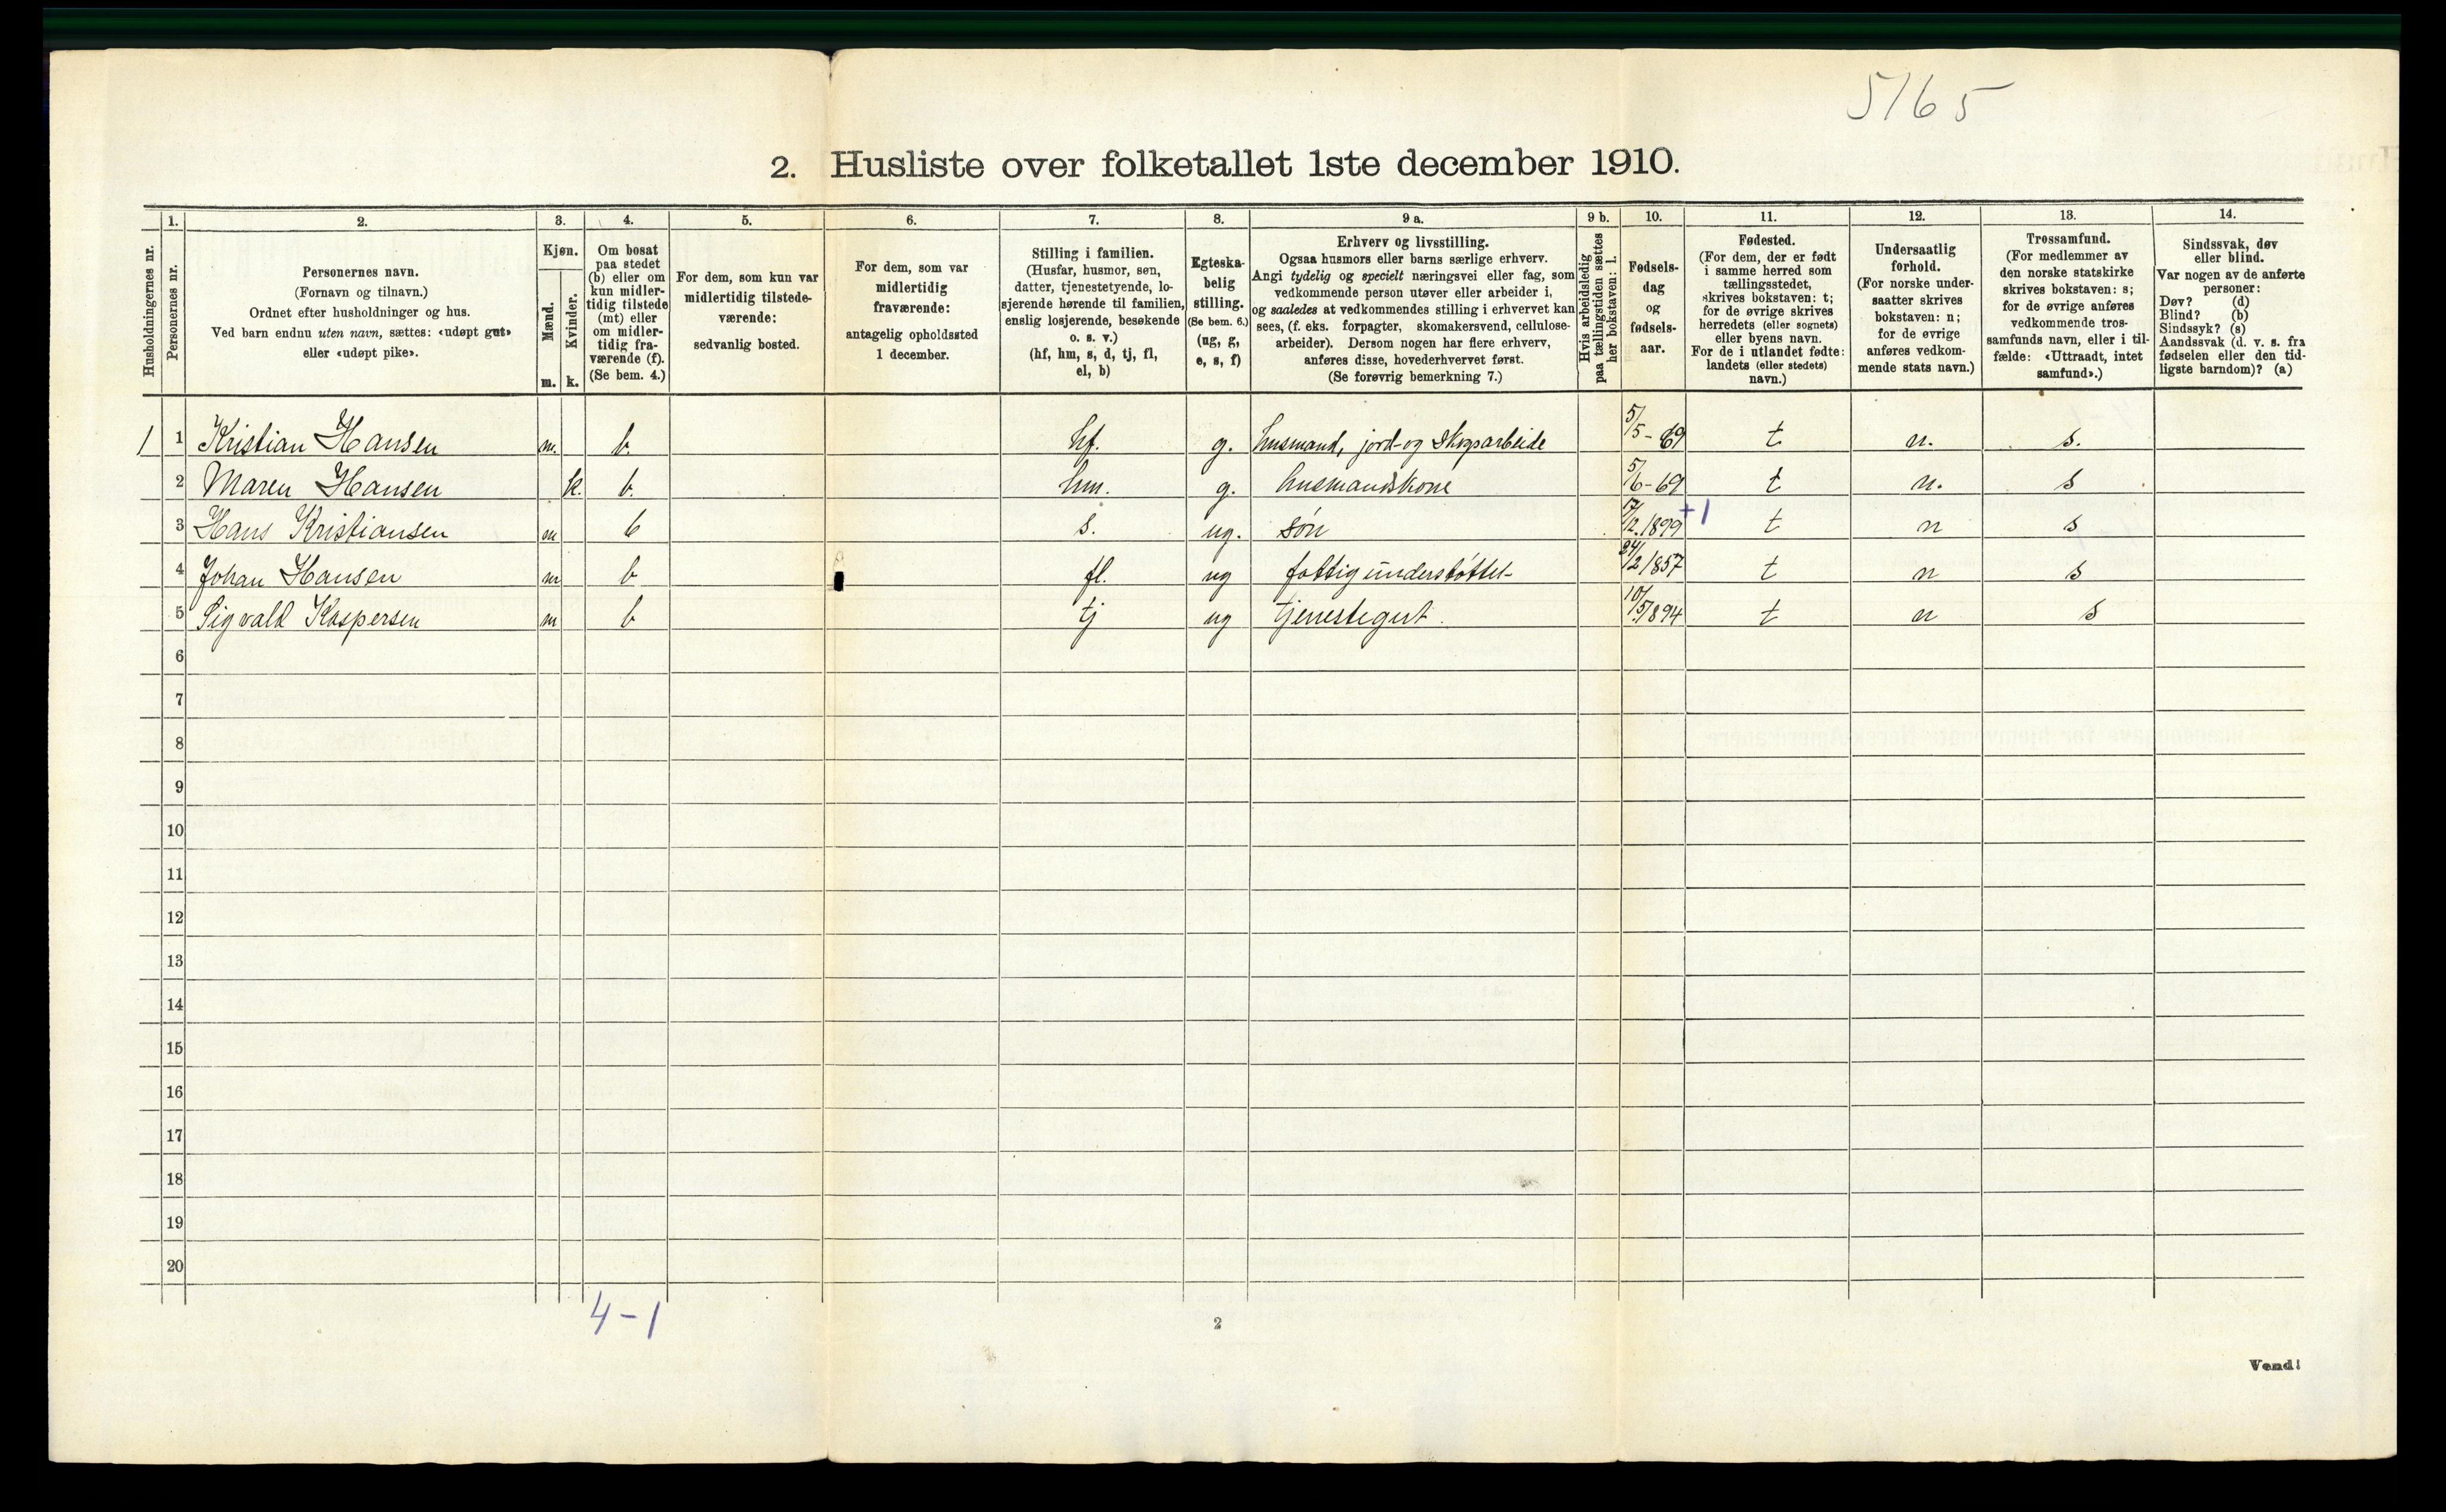 5165
2. Husliste over folketallet 1ste december 1910.
Husholdningernes nr.
1.
Personernes nr.
2.
Personernes navn.
(Fornavn og tilnavn.)
Ordnet efter husholdninger og hus.
Ved barn endnu uten navn, sættes: «udøpt gut»
eller «udøpt pike».
3.
Kjøn.
Mænd.
Kvinder.
m. k.
4.
Om bosat
paa stedet
(b) eller om
kun midler-
tidig tilstede
(mt) eller
om midler-
tidig fra-
værende (f).
(Se bem. 4.)
5.
For dem, som kun var
midlertidig tilstede-
værende:
sedvanlig bosted.
6.
For dem, som var
midlertidig
fraværende:
antagelig opholdssted
1 december.
7.
Stilling i familien.
(Husfar, husmor, søn,
datter, tjenestetyende, lo-
sjerende hørende til familien,
enslig losjerende, besøkende
o. s. v.)
(hf, hm, s, d, tj, fl,
el, b)
8.
Egteska-
belig
stilling.
(Se bem. 6.)
(ug, g,
e, s, f)
9 a.
Erhverv og livsstilling.
Ogsaa husmors eller barns særlige erhverv.
Angi tydelig og specielt næringsvei eller fag, som
vedkommende person utøver eller arbeider i,
og saaledes at vedkommendes stilling i erhvervet kan
sees, (f. eks. forpagter, skomakersvend, cellulose-
arbeider). Dersom nogen har flere erhverv,
anføres disse, hovederhvervet først.
(Se forøvrig bemerkning 7.)
9 b.
Hvis arbeidsledig
paa tællingstiden sættes
her bokstaven: l.
10.
Fødsels-
dag
og
fødsels-
aar.
11.
Fødested.
(For dem, der er født
i samme herred som
tællingsstedet,
skrives bokstaven: t;
for de øvrige skrives
herredets (eller sognets)
eller byens navn.
For de i utlandet fødte:
landets (eller stedets)
navn.)
12.
Undersaatlig
forhold.
(For norske under-
saatter skrives
bokstaven: n;
for de øvrige
anføres vedkom-
mende stats navn.)
13.
Trossamfund.
(For medlemmer av
den norske statskirke
skrives bokstaven: s;
for de øvrige anføres
vedkommende tros-
samfunds navn, eller i til-
fælde: «Uttraadt, intet
samfund».)
14.
Sindssvak, døv
eller blind.
Var nogen av de anførte
personer:
Døv? (d)
Blind? (b)
Sindssyk? (s)
Aandssvak (d. v. s. fra
fødselen eller den tid-
ligste barndom)? (a)
1 1 Kristian Hansen m. b. hf. g. husmand, jord- og skogsarbeide 5/5-69 t. n. s.
2 Maren Hansen k. b. hm. g. husmandskone 5/6-69 t n. s
3 Hans Kristiansen m b s. ug. søn 17/12.1899 +1 t n s
4 Johan Hansen m b fl. ug fattigunderstøttet- 24/2 1857 t n s
5 Sigvald Kaspersen m b tj ug tjenestegut. 10/5 1894 t n s
6
7
8
9
10
11
12
13
14
15
16
17
18
19
20
4-1
2
Vend!